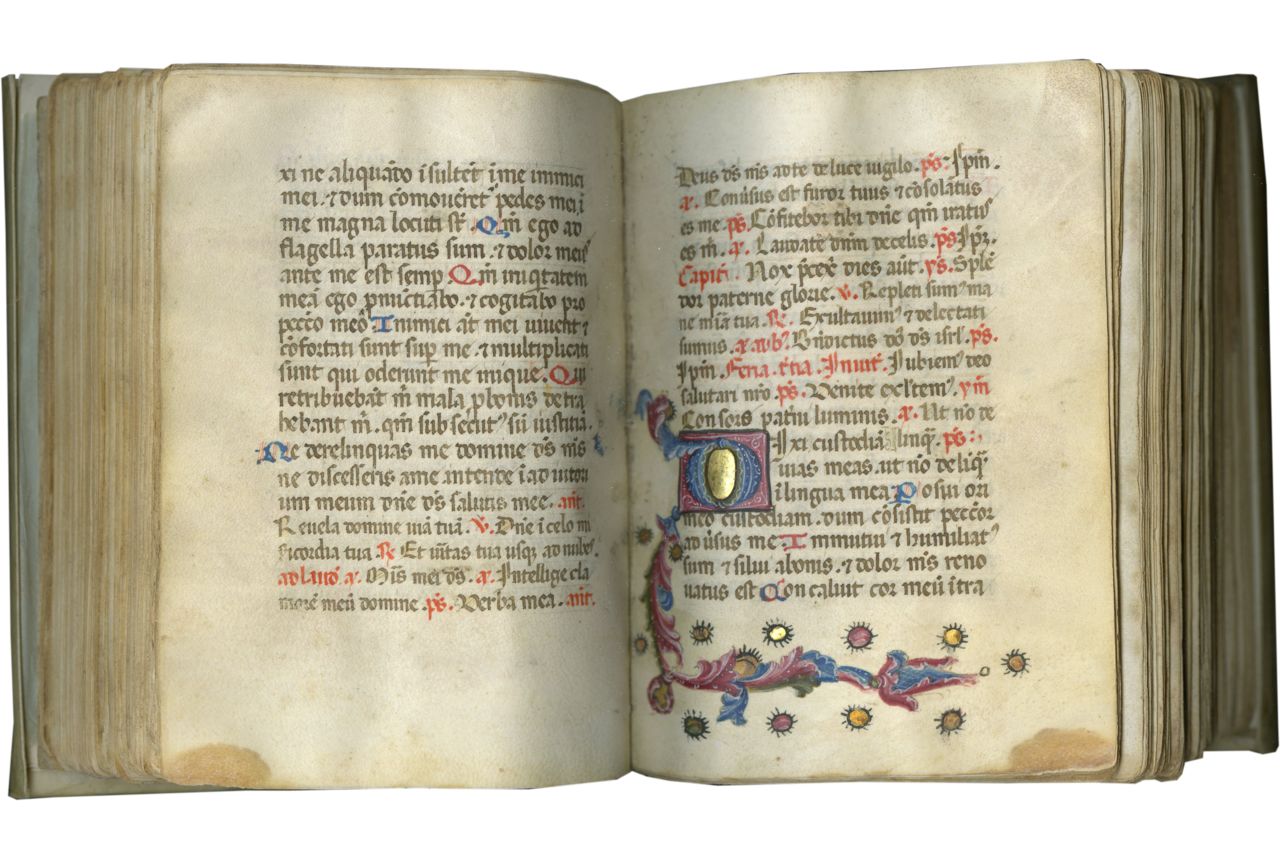 xi ne aliquādo īsultēt īme inimici
mei. ⁊ dum cōmoverēt̄ pedes mei ī
me magna locuti st̄. Qm̄ ego ad
flagella paratus sum. ⁊ dolor meus
ante me est semp̄ Qm̄ iniqtatem
meā ego p̄nūctiabo. ⁊ cogitabo pro
pecc̄o meo Inimici āt mei vivent ⁊
cōfortati sunt sup̄ me. ⁊ multiplicati
sunt qui oderunt me inique. Qui
retribuebāt m̄ mala p̄ bonis detra
hebant m̄. qm̄ sub secut' sū iustitiā.
Ne derelinquas me domine ds̄ ms̄
ne discesseris a me intende ī adiutori
um meum dn̄e ds̄ salutis mee. ant̄.
Revela domine viā tuā. v̄. Dn̄e ī celo mi
sericordia tua R̄ Et v̄itas tua usq; ad nubes
ad laud̄ a. Ms̄ mei ds̄. a. Intellige cla
morē meū domine ps̄. Verba mea. ant̄.
Deus ds̄ ms̄ ad te de luce vigilo. ps̄. Ipm̄.
a. Convsus est furor tuus ⁊ cōsolatus
es me. ps̄. Cōfitebor tibi dn̄e qm̄ iratus
es m̄. a. Laudate dnm̄ de celis. ps̄ Ip̄z.
Capitl̄. Nox p̄cex̄ dies aūt. ys. Splē
dor paterne glorie. v. Repleti sum' ma
ne mīa tua. R̄. Exultavim' ⁊ delectati
sumus. a. ad b̄. Bn̄dictus dō ds̄ isrl̄. ps̄.
Ipm̄. Feria t̄tia. Invit̄. Iubilem' deo
salutari nr̄o. ps̄. Venite exl̄tem'. ym̄
Consors pat̄ni luminis. a. Ut nō de
Dixi custodiā linq̄. ps̄:
vias meas. ut nō deliq̄
ī lingua mea Posui ori
meo custodiam. dum cōsistit peccōr
ad v̄sus me Immutui ⁊ humiliat'
sum ⁊ silui a bonis. ⁊ dolor ms̄ reno
vatus est Concaluit cor meū ītra